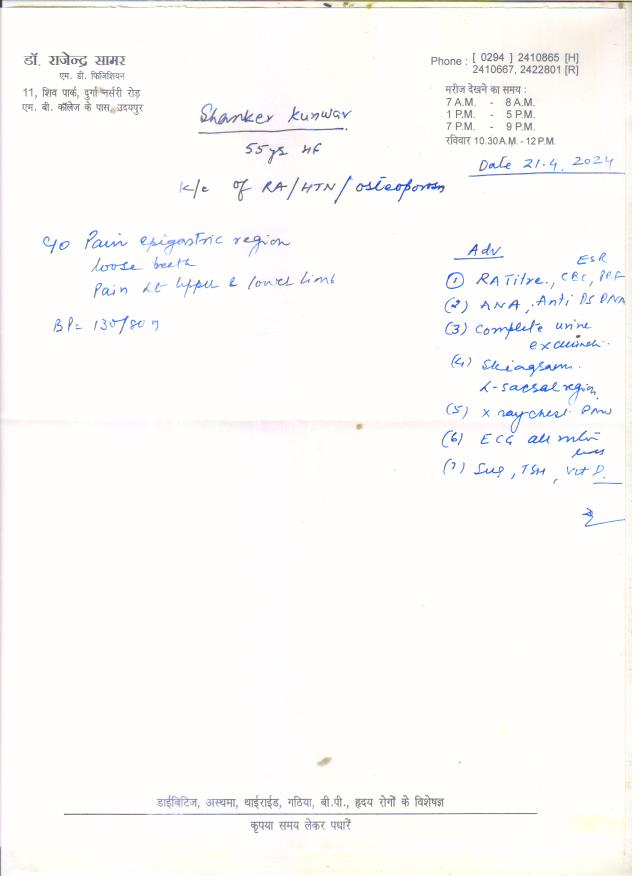 डॉ. राजेन्द्र सामर
एम. डी. फिजिशियन
11, शिव पार्क, दुर्गा नर्सरी रोड़
एम. बी. कॉलेज के पास, उदयपुर
Phone : [ 0294 ] 2410865 [H]
2410667, 2422801 [R]
मरीज देखने का समय :
7 A.M. - 8 A.M.
1 P.M. - 5 P.M.
7 P.M. - 9 P.M.
रविवार 10.30 A.M. - 12 P.M.
Date 21.4.2024
Shanker Kunwar
55 yrs HF
K/c of RA/HTN/osteoporosis
c/o Pain epigastric region
loose teeth
Pain Lt upper & lower limb
BP = 130/80
Adv
ESR
(1) RA Titre., CBC,
(2) ANA, Anti DS DNA
(3) Complete urine
(4) Skiagram.
L-sacral region
(5) X ray chest
(6) ECG all
(7) TSH, Vit D.
डाईबिटिज, अस्थमा, थाईराईड, गठिया, बी.पी., हृदय रोगों के विशेषज्ञ
कृपया समय लेकर पधारें